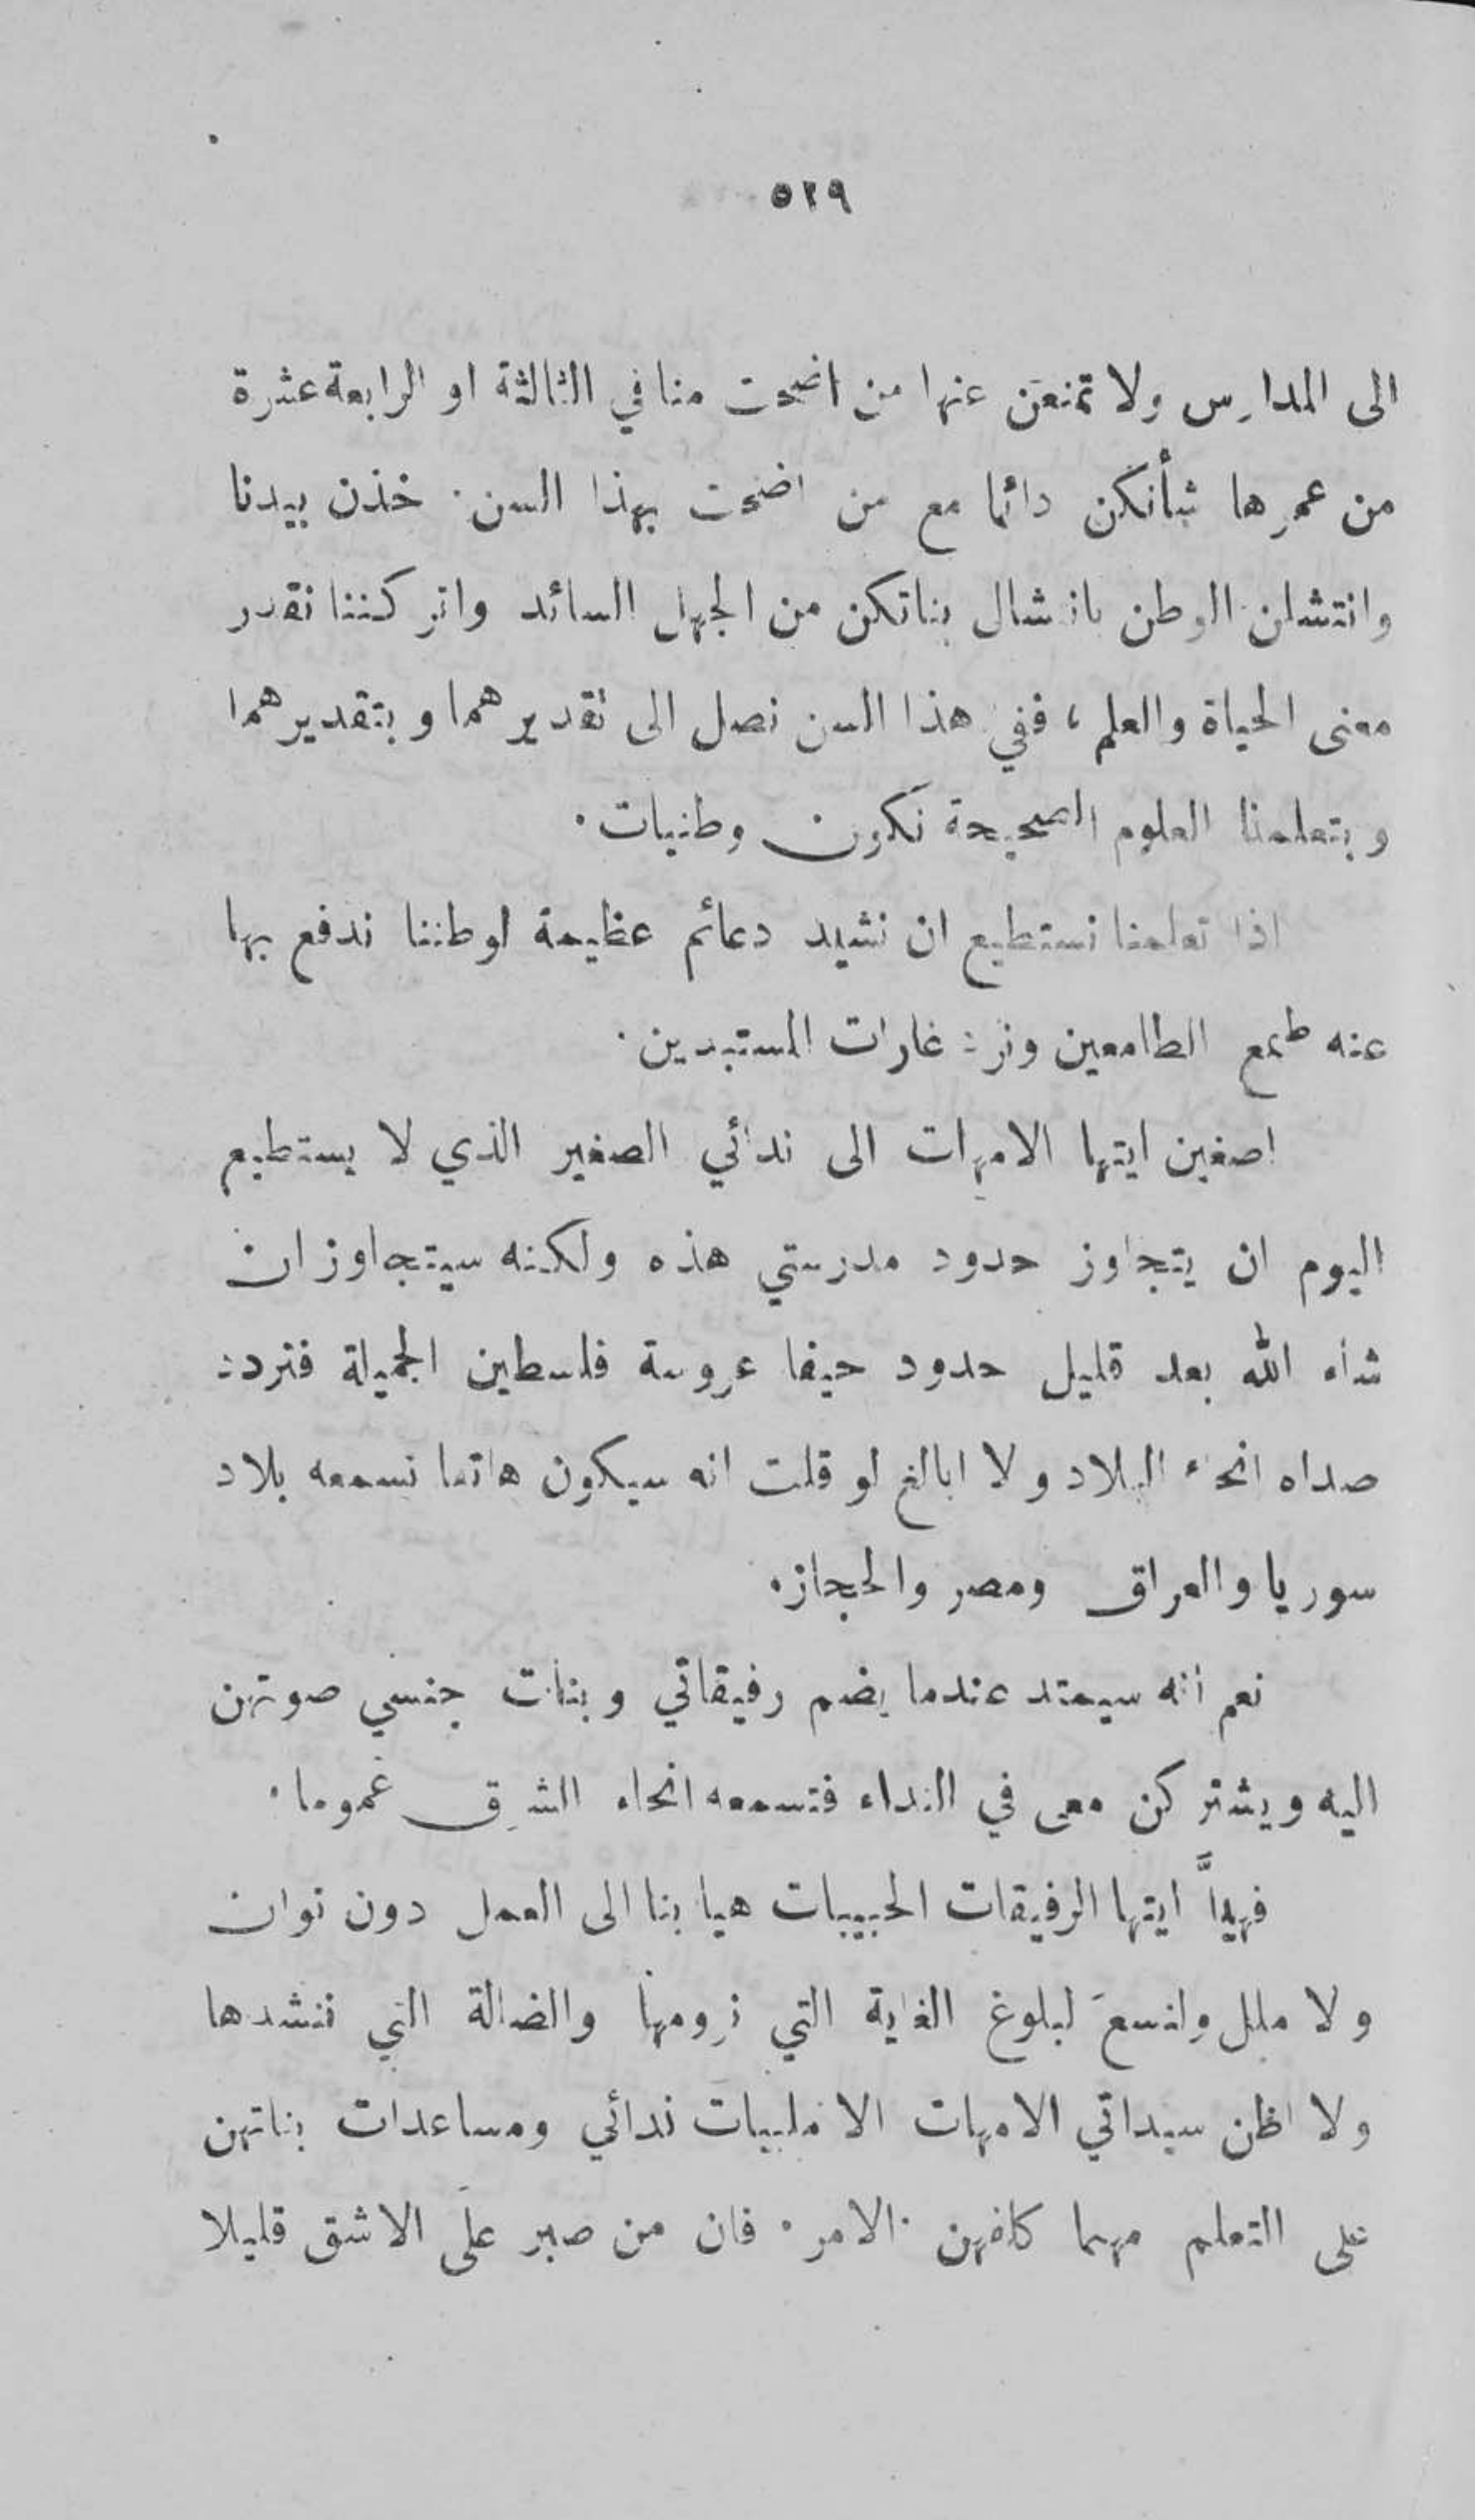 ٥٢٩
الى المدارس ولا تمنعن عنها من اضحت منا في الثالثة او الرابعة عشرة
من عمرها شأنكن دائما مع من اضحت بهذا السن. خذن بيدنا
وانتشلن الوطن بانتشال بناتكن من الجهل السائد واتركننا نقدر
معنى الحياة والعلم، ففي هذا السن نصل الى تقديرهما وبتقديرهما
وبتعلمنا العلوم الصحيحة نكون وطنيات.
اذا تعلمنا نستطيع ان نشيد دعائم عظيمة لوطننا ندفع بها
عنه طمع الطامعين ونرد غارات المستبدين.
اصغين ايتها الامهات الى ندائي الصغير الذي لا يستطيع
اليوم ان يتجاوز حدود مدرستي هذه ولكنه سيتجاوز ان
شاء الله بعد قليل حدود حيفا عروسة فلسطين الجميلة فتردد
صداه انحاء البلاد ولا ابالغ لو قلت انه سيكون هاتفا تسمعه بلاد
سوريا والعراق ومصر والحجاز.
نعم انه سيمتد عندما يضم رفيقاتي وبنات جنسي صوتهن
اليه ويشتركن معي في النداء فتسمعه انحاء الشرق عموما.
فهيَّا ايتها الرفيقات الحبيبات هيا بنا الى العمل دون توان
ولا ملل ولنسعَ لبلوغ الغاية التي نرومها والضالة التي ننشدها
ولا اظن سيداتي الامهات الا ملبيات ندائي ومساعدات بناتهن
على التعلم مهما كلفهن الامر. فان من صبر على الاشق قليلا